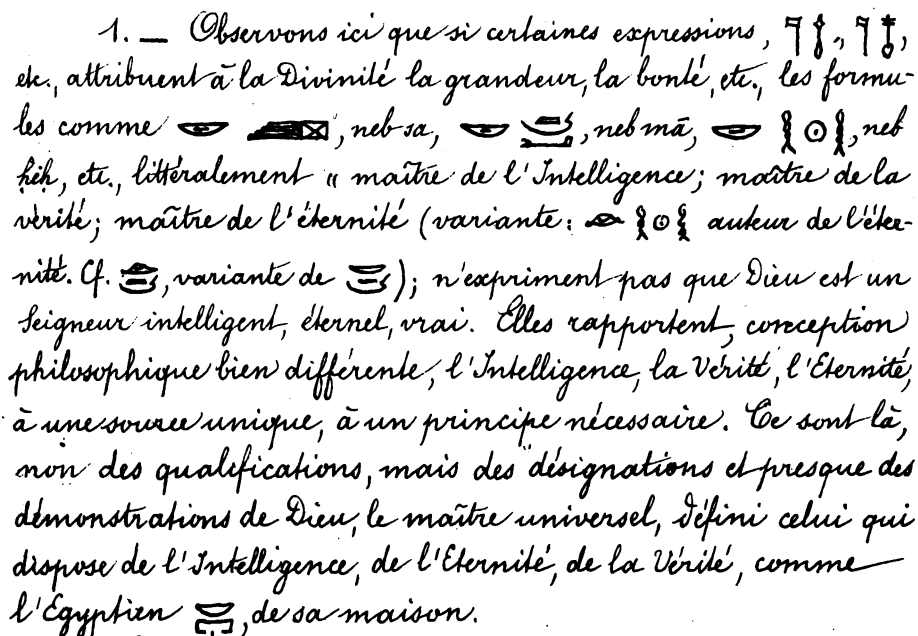 1. — Observons ici que si certaines expressions, 𓊹𓄤, 𓊹𓌡,
etc., attribuent à la Divinité la grandeur, la bonté, etc., les formu-
les comme 𓎟, neb sa, 𓎟, neb mā, 𓎟 𓎛𓇳𓎛, neb
ḥeḥ, etc., littéralement " maître de l'Intelligence; maître de la
vérité; maître de l'éternité (variante: 𓁹 𓎛𓇳𓎛 auteur de l'éter-
nité. Cf. , variante de ); n'expriment pas que Dieu est un
Seigneur intelligent, éternel, vrai. Elles rapportent, conception
philosophique bien différente, l'Intelligence, la Vérité, l'Eternité,
à une source unique, à un principe nécessaire. Ce sont là,
non des qualifications, mais des désignations et presque des
démonstrations de Dieu, le maître universel, défini celui qui
dispose de l'Intelligence, de l'Eternité, de la Vérité, comme
l'Egyptien 𓎟𓉐, de sa maison.